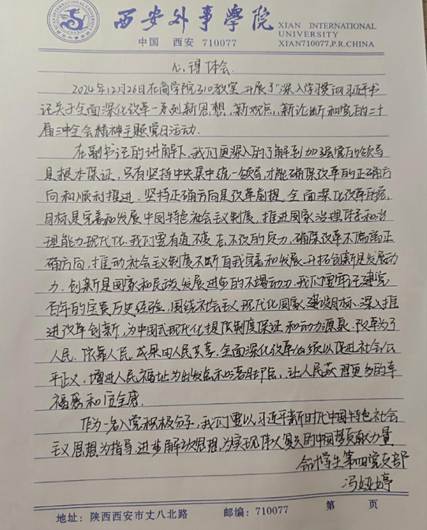 西安外事学院
XIAN INTERNATIONAL
UNIVERSITY
中国 西安 710077
XIAN710077,P.R.CHINA
心得体会
2024年12月26日在商学院310教室开展了"深入学习习近平书
记关于全面深化改革一系列新思想,新观点,新论断和党的二十
届三中全会精神主题党日活动。
在副书记的讲解下,我们更深入的了解到加强党的领导
是根本保证,只有坚持中央集中统一领导,才能确保改革的正确方
向和顺利推进。坚持正确方向是改革前提,全面深化改革的总
目标是完善和发展中国特色社会主义制度,推进国家治理体系和治
理能力现代化,我们要有道不变、志不改的定力,确保改革不偏离正
确方向,推动社会主义制度不断自我完善和发展,开拓创新是发展动
力,创新是国家和民族发展进步的不竭动力,我们需要
百年的宝贵历史经验,围绕社会主义现代化国家建设目标,深入推
进改革创新,为中国式现代化提供制度保证和动力源泉,改革为了
人民,依靠人民,成果由人民共享,全面深化改革必须以促进社会公
平正义,增进人民福祉为出发点和落脚点,让人民获得更多的幸
福感和安全感。
作为一名入党积极分子,我们要以习近平新时代中国特色社会
主义思想为指导,进步解放思想,为实现伟大复兴的中国梦贡献力量
会计学生第四党支部
冯娅婷
地址:陕西西安市丈八北路
邮编:710077
第 页